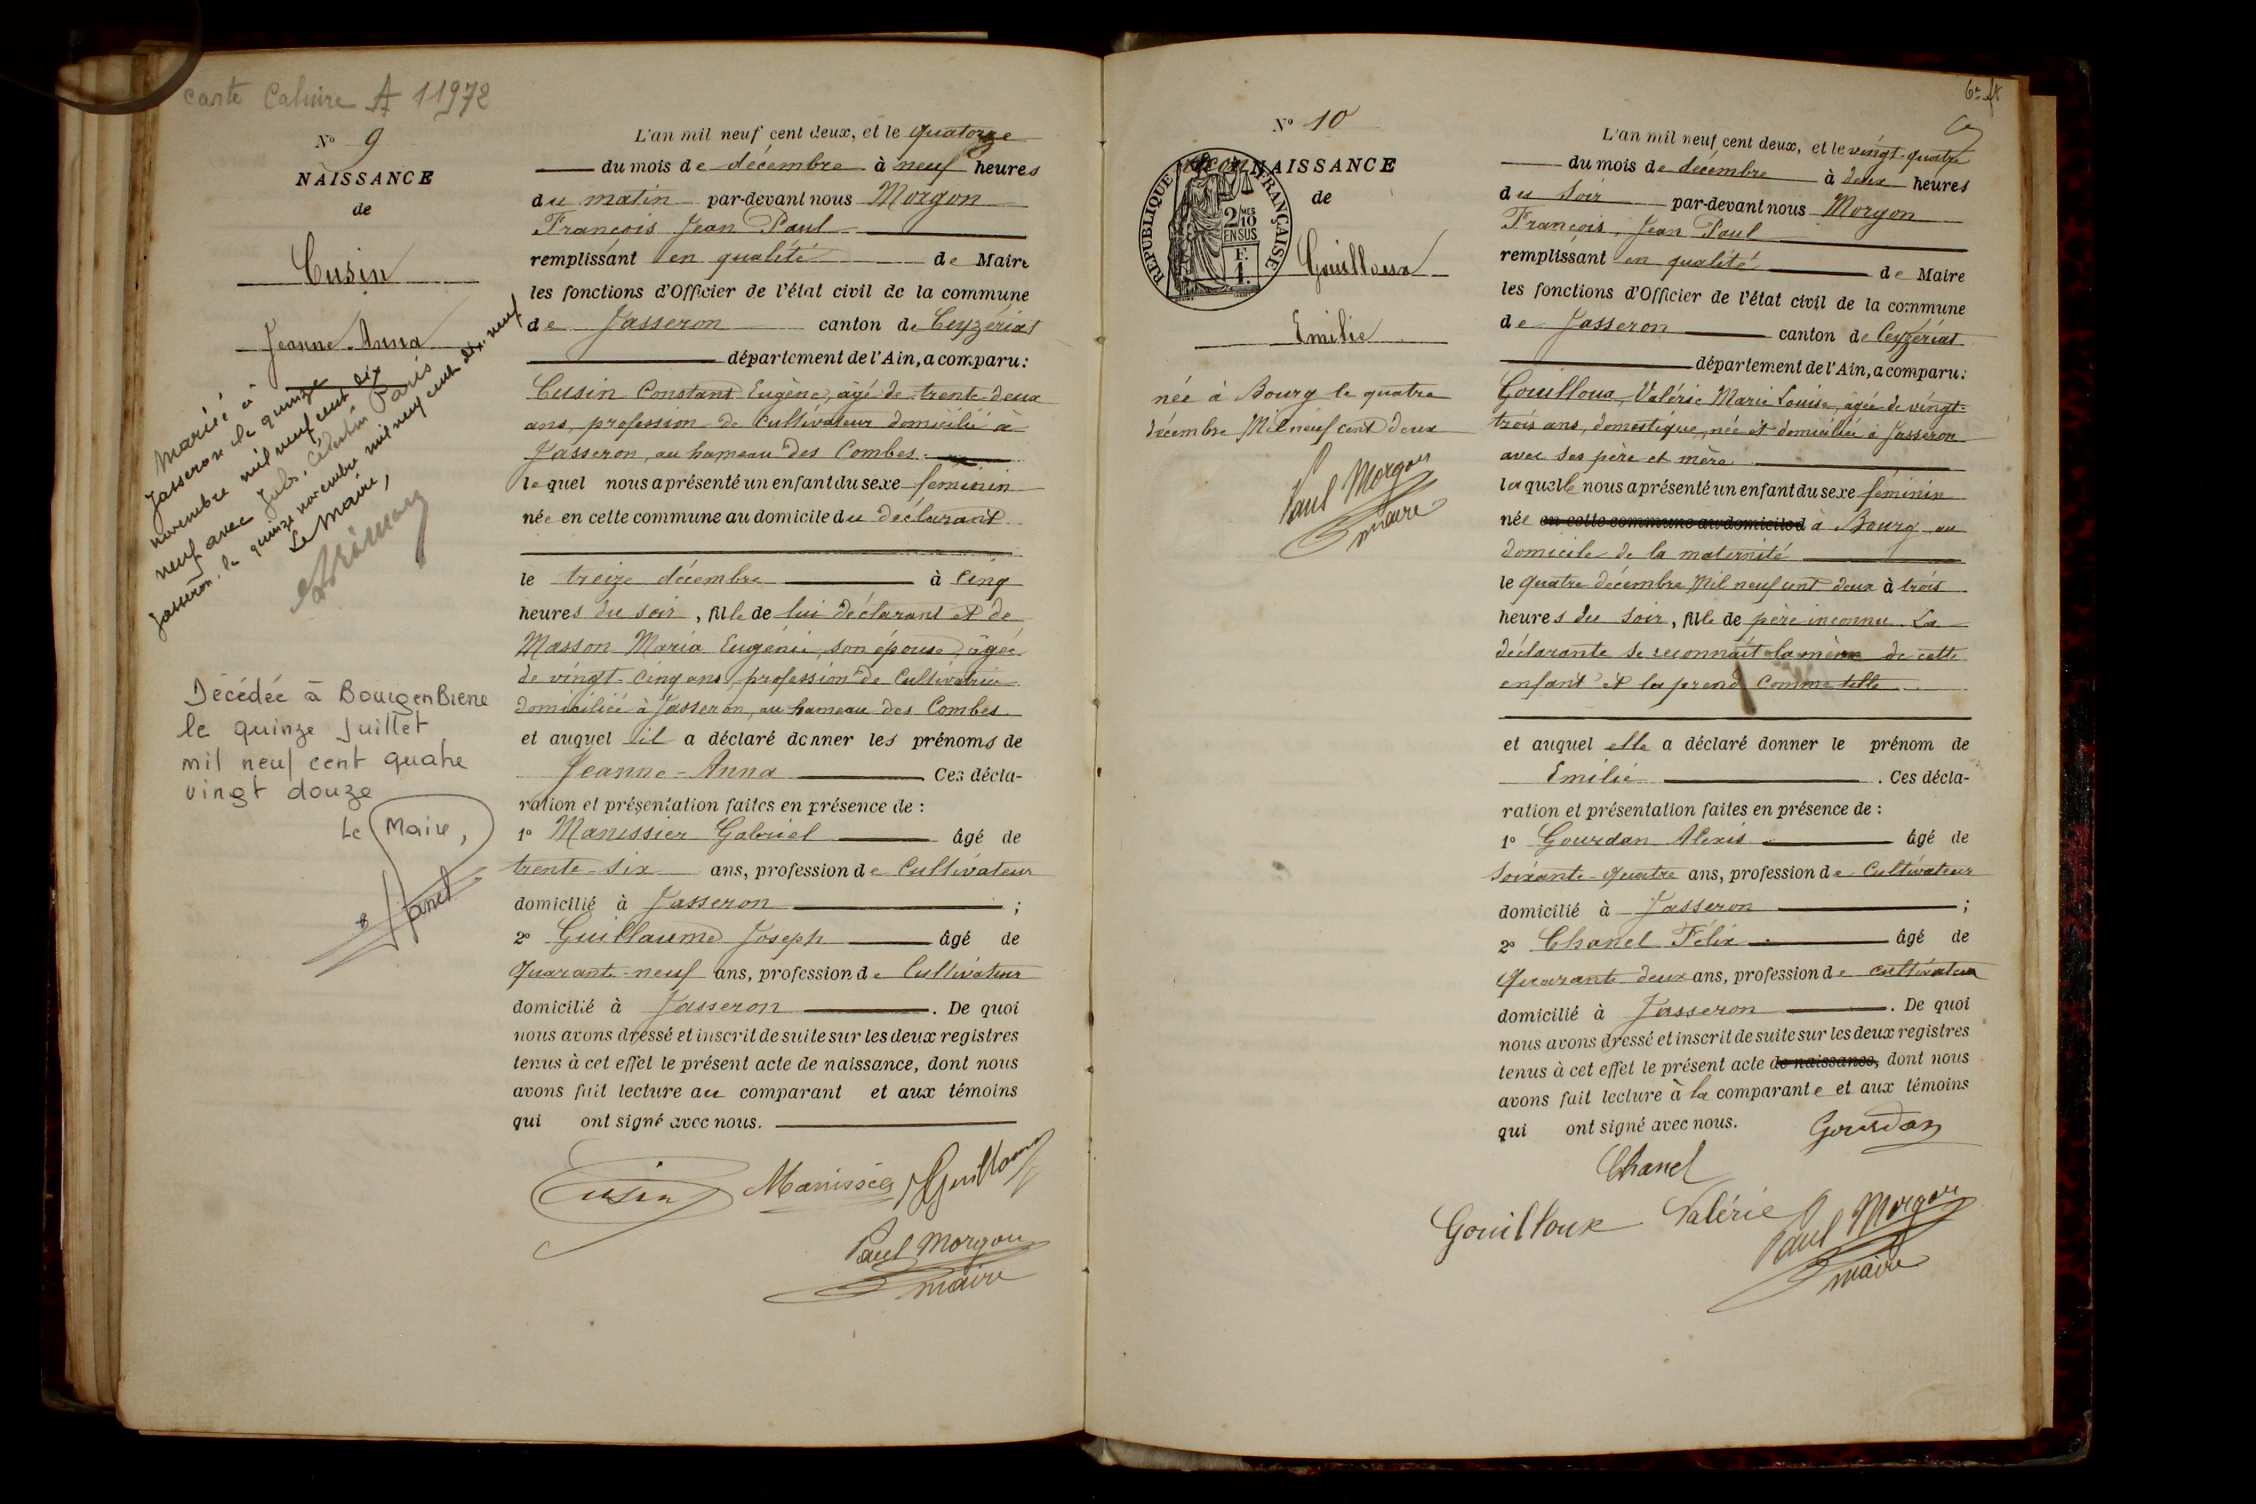 carte Caluire A 11972
N° 9
NAISSANCE
de
Cusin
Jeanne-Anna
Mariée à
Jasseron le quinze
novembre mil neuf cent dix
neuf avec Jules, Célestin Paris
Jasseron, le quinze novembre mil neuf cent dix-neuf
Le Maire,
Décédée à Bourg en Bresse
le quinze Juillet
mil neuf cent quatre
vingt douze
Le Maire,
L'an mil neuf cent deux, et le quatorze
du mois de décembre à neuf heures
du matin par-devant nous Morgon
François Jean Paul
remplissant en qualité de Maire
les fonctions d'Officier de l'état civil de la commune
de Jasseron canton de Ceyzériat
département de l'Ain, a comparu:
Cusin Constant Eugène, âgé de trente deux
ans, profession de Cultivateur domicilié à
Jasseron, au hameau des Combes.
lequel nous a présenté un enfant du sexe feminin
née en cette commune au domicile du déclarant
le treize décembre à cinq
heures du soir, fille de lui déclarant et de
Masson Maria Eugénie, son épouse, âgée
de vingt-cinq ans, profession de Cultivatrice
domiciliée à Jasseron, au hameau des Combes
et auquel il a déclaré donner les prénoms de
Jeanne-Anna Ces décla-
ration et présentation faites en présence de :
1° Manissier Gabriel âgé de
trente-six ans, profession de Cultivateur
domicilié à Jasseron ;
2° Guillaume Joseph âgé de
Quarante-neuf ans, profession de Cultivateur
domicilié à Jasseron . De quoi
nous avons dressé et inscrit de suite sur les deux registres
tenus à cet effet le présent acte de naissance, dont nous
avons fait lecture au comparant et aux témoins
qui ont signé avec nous.
Cusin Manissier Guillaume
Paul Morgon
maire
N° 10
NAISSANCE
de
REPUBLIQUE FRANÇAISE
2/10 MES
EN SUS
F.
1.
Gouilloux
Emilie
née à Bourg le quatre
décembre Mil neuf cent deux
Paul Morgon
maire
L'an mil neuf cent deux, et le vingt-quatre
du mois de décembre à deux heures
du soir par-devant nous Morgon
François, Jean Paul
remplissant en qualité de Maire
les fonctions d'Officier de l'état civil de la commune
de Jasseron canton de Ceyzériat
département de l'Ain, a comparu:
Gouilloux, Valérie Marie Louise, âgée de vingt-
trois ans, domestique, née et domiciliée à Jasseron
avec ses père et mère
laquelle nous a présenté un enfant du sexe féminin
née en cette commune au domicile d à Bourg au
domicile de la maternité
le quatre décembre Mil neuf cent deux à trois
heures du soir, fille de père inconnu. La
déclarante se reconnaît la mère de cette
enfant et la prend comme telle
et auquel elle a déclaré donner le prénom de
Emilie . Ces décla-
ration et présentation faites en présence de :
1° Gourdan Alexis âgé de
Soixante-quatre ans, profession de Cultivateur
domicilié à Jasseron ;
2° Chanel Félix âgé de
Quarante deux ans, profession de cultivateur
domicilié à Jasseron . De quoi
nous avons dressé et inscrit de suite sur les deux registres
tenus à cet effet le présent acte de naissance, dont nous
avons fait lecture à la comparante et aux témoins
qui ont signé avec nous. Gourdan
Chanel
Gouilloux Valérie Paul Morgon
maire